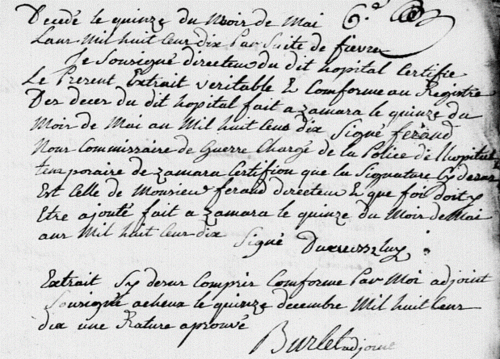 Decedé le quinze du Mois de Mai
L'an Mil huit Cent dix Par Suite de fievre
Je Sousigné directeur du dit hopital Certifie
Le Present Extrait veritable & Conforme au Registre
Des deces du dit hopital fait a zamara le quinze du
Mois de Mai an Mil huit Cent dix Signé feraud
Nous Commissaire de Guerre Chargé de la Police de l'hopital
temporaire de zamara Certifion que la Signature Cy desus
Est Celle de Monsieur feraud directeur & que foi doit y
Etre ajouté fait a zamara le quinze du Mois de Mai
an Mil huit Cent dix Signé
Extrait Sy desus Compris Conforme Par Moi adjoint
Sousigné le quinze decembre Mil huit Cent
dix une Rature aprouvé
Burlet adjoint